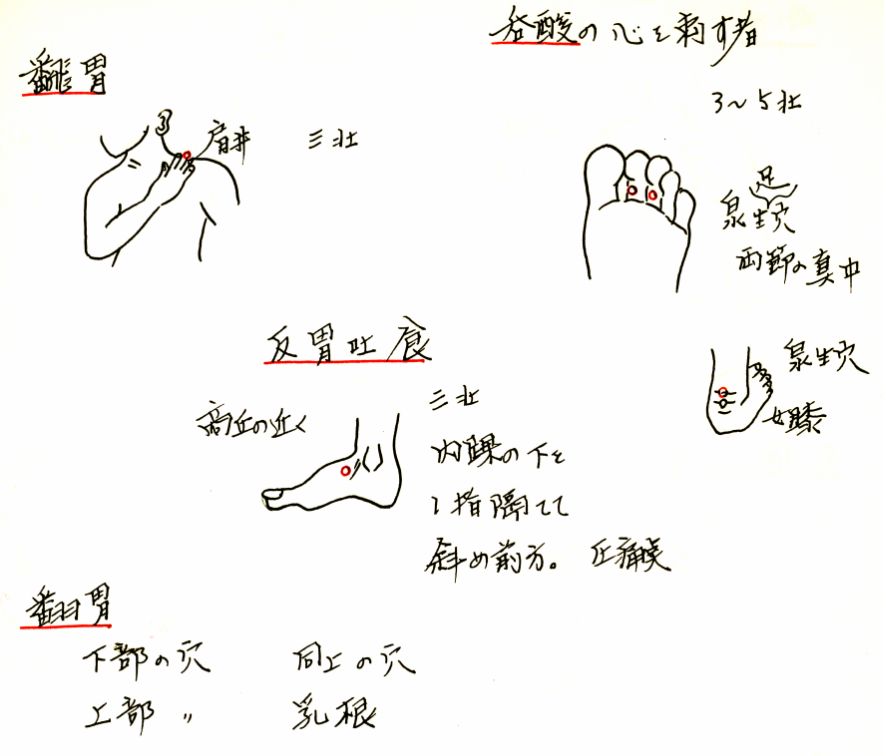 翻胃
肩井
三壮
呑酸の心を刺す者
3〜5壮
足
泉生穴
両節の真中
泉生穴
女膝
反胃吐食
商丘の近く
三壮
内踝の下を
1指隔てて
斜め前方。圧痛処
翻胃
下部の穴 同上の穴
上部 〃 乳根